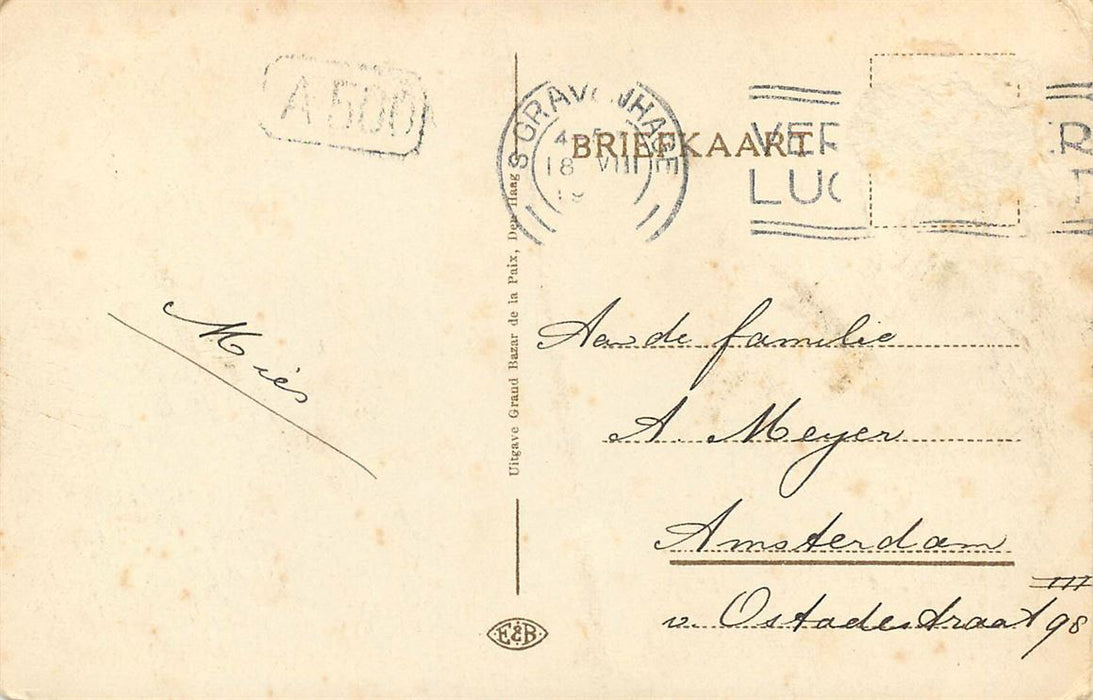 A 500
'S GRAVENHAGE
4
18 VIII
19
BRIEFKAART
VER ER
LUC
Uitgave Grand Bazar de la Paix, Den Haag
Mies
Aan de familie
A. Meyer
Amsterdam
v. Ostadestraat 98 III
E&B